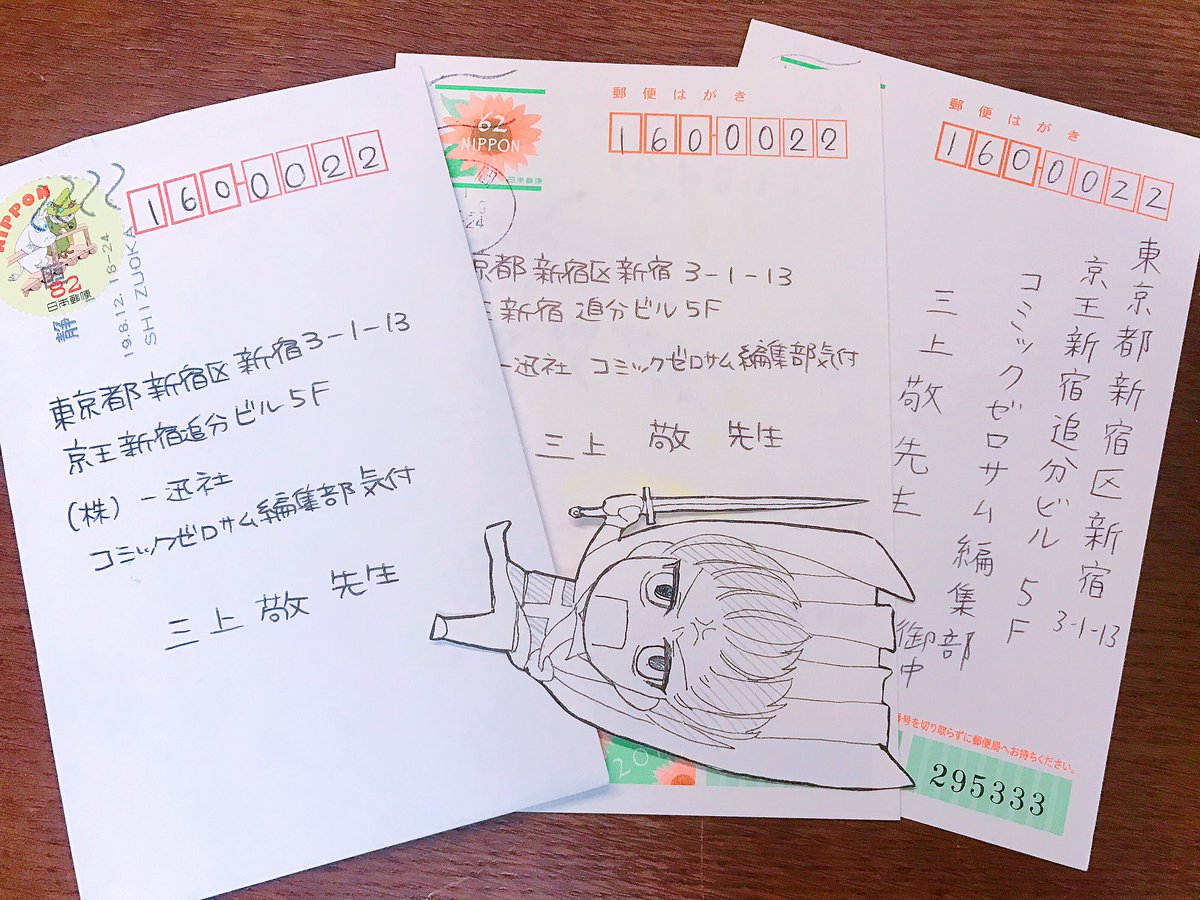 NIPPON
82
日本郵便
静岡
19.8.12. 18-24
SHIZUOKA
160-0022
東京都新宿区新宿3-1-13
京王新宿追分ビル5F
(株)一迅社
コミックゼロサム編集部気付
三上敬 先生
郵便はがき
62
NIPPON
日本郵便
-24
160-0022
京都新宿区新宿3-1-13
王新宿追分ビル5F
一迅社 コミックゼロサム編集部気付
三上 敬 先生
20
郵便はがき
160-0022
東京都新宿区新宿3-1-13
京王新宿追分ビル5F
コミックゼロサム編集部御中
三上敬先生
番号を切り取らずに郵便局へお持ちください。
295333